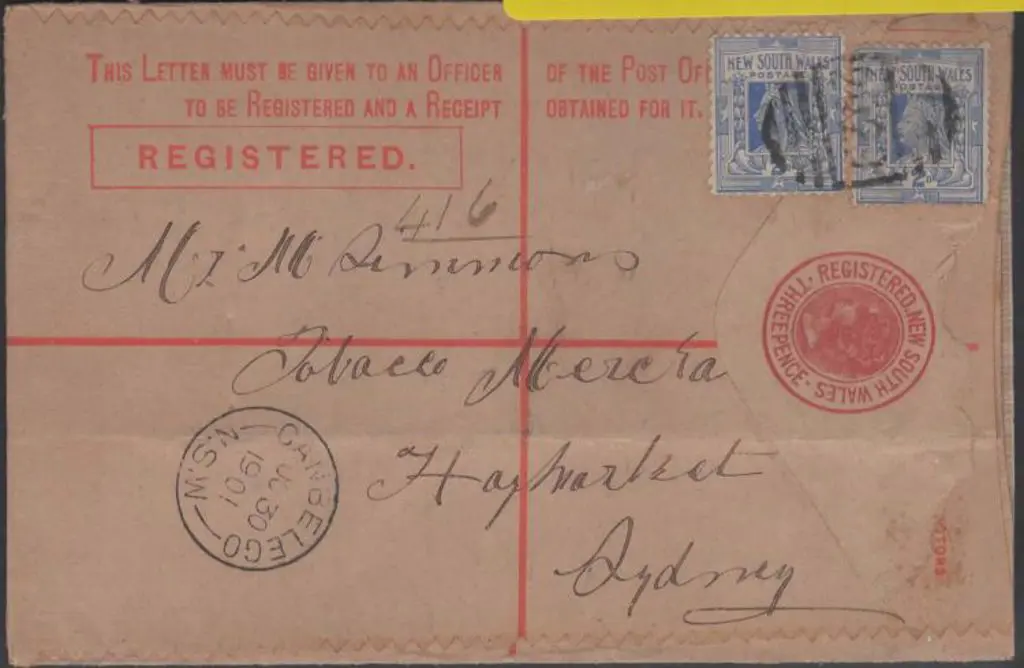 THIS LETTER MUST BE GIVEN TO AN OFFICER OF THE POST OF
TO BE REGISTERED AND A RECEIPT OBTAINED FOR IT.
REGISTERED.
NEW SOUTH WALES
POSTAGE
NEW SOUTH WALES
POSTAGE
416
Mr M Simmons
Tobacco Mercha
Haymarket
Sydney
REGISTERED. NEW SOUTH WALES · THREEPENCE ·
CANBELEGO
JL 30
1901
N.S.W